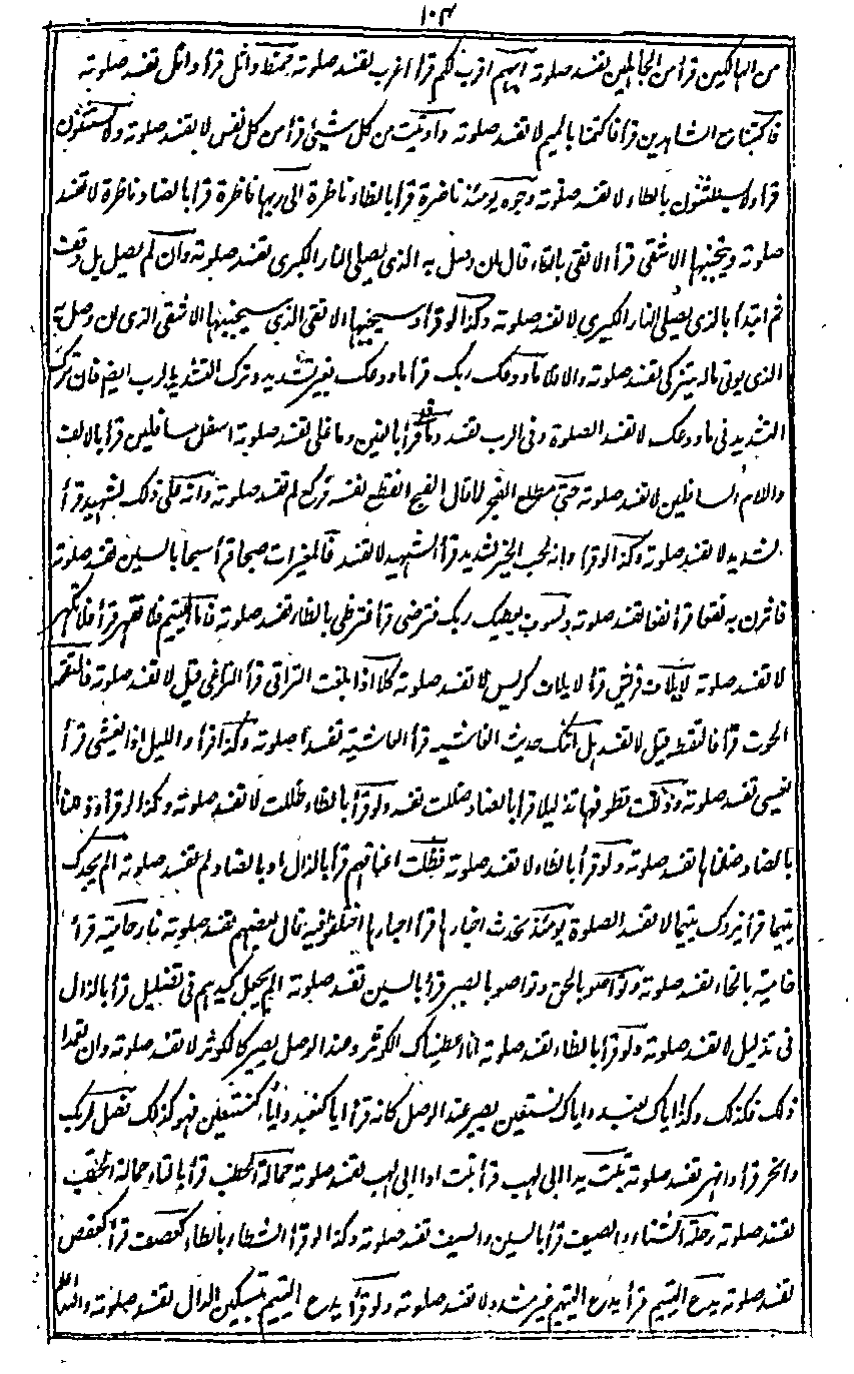 ١٠٣
من الهالكين قرأ من الجاهلين تفسد صلوته ايهم اقرب لكم قرأ اغرب تفسد صلوته خمط واثل قرأ وائل تفسد صلوته
فاكتبنا مع الشاهدين قرأ فاكتمنا بالميم لا تفسد صلوته واوتيت من كل شيئ قرأ من كل نفس لا تفسد صلوته ولا يستثنون
قرأ ولا يستثنون بالطاء لا تفسد صلوته وجوه يومئذ ناضرة قرأ بالظاء ناظرة الى ربها ناظرة قرأ بالضاد ناضرة لا تفسد
صلوته ويتجنبها الاشقى قرأ الاتقى بالتاء قال ان وصل به الذى يصلى النار الكبرى تفسد صلوته وان لم يصل بل وقف
ثم ابتدأ بالذى يصلى النار الكبرى لا تفسد صلوته وكذا لو قرأ وسيجنبها الاتقى الذى سيجنبها الاشقى الذى ان وصل به
الذى يوتى ماله يتزكى تفسد صلوته والا فلا ما ودعك ربك قرأ ما ودعك بغير تشديد وترك التشديد لرب ايضا فان ترك
التشديد فى ما ودعك لا تفسد الصلوة وفى الرب تفسد وما قلى قرأ بالغين وما غلى تفسد صلوته اسفل سافلين قرأ بالالف
واللام السافلين لا تفسد صلوته حتى مطلع الفجر لما قال الفجر انقطع نفسه فركع لم تفسد صلوته وانه على ذلك لشهيد قرأ
لشديد لا تفسد صلوته وكذا لو قرأ وانه لحب الخير لشديد قرأ لشهيد لا تفسد فالمغيرات صبحا قرأ سبحا بالسين تفسد صلوته
فاثرن به نقعا قرأ نفعا تفسد صلوته ولسوف يعطيك ربك فترضى قرأ فترظى بالظاء تفسد صلوته فاما اليتيم فلا تقهر قرأ فلا تكهر
لا تفسد صلوته لايلاف قريش قرأ لايلاف كريس لا تفسد صلوته كلا اذا بلغت التراقى قرأ التراغى قيل لا تفسد صلوته فالتقمه
الحوت قرأ فالتقطه قيل لا تفسد هل اتىك حديث الغاشيه قرأ العاشية تفسد صلوته وكذا قرأ والليل اذا يغشى قرأ
يغسى تفسد صلوته وذللت قطوفها تذليلا قرأ بالضاد ضللت تفسد ولو قرأ بالظاء ظللت لا تفسد صلوته وكذا لو قرأ وذللناها
بالضاد ضللناها تفسد صلوته ولو قرأ بالظاء لا تفسد صلوته فظلت اعناقهم قرأ بالذال او بالضاد لم تفسد صلوته الم يجدك
يتيما قرأ يزدك يتيما لا تفسد الصلوة يومئذ تحدث اخبارها قرأ احبارها اختلفوا فيه قال بعضهم تفسد صلوته نار حامية قرأ
خامية بالخاء تفسد صلوته وتواصوا بالحق وتواصوا بالصبر قرأ بالسين تفسد صلوته الم يجعل كيدهم فى تضليل قرأ بالذال
فى تذليل لا تفسد صلوته ولو قرأ بالظاء تفسد صلوته انا اعطيناك الكوثر وعند الوصل يصير كالكوثر لا تفسد صلوته وان تعمدا
ذلك فكذلك وكذا اياك نعبد واياك نستعين يصير عند الوصل كانه قرأ ايا كنعبد وايا كنستعين فهو كذلك فصل لربك
وانحر قرأ وانهر تفسد صلوته تبت يدا ابى لهب قرأ تبت ادا ابى لهب تفسد صلوته حمالة الحطب قرأ بالتاء حمالة الحتب
تفسد صلوته رحلة الشتاء والصيف قرأ بالسين والسيف تفسد صلوته وكذا لو قرأ الشطاء بالطاء كعصف قرأ كعفص
تفسد صلوته يدع اليتيم قرأ يدع اليتيم غير مشدد لا تفسد صلوته ولو قرأ يدع اليتيم بتسكين الدال تفسد صلوته والله اعلم